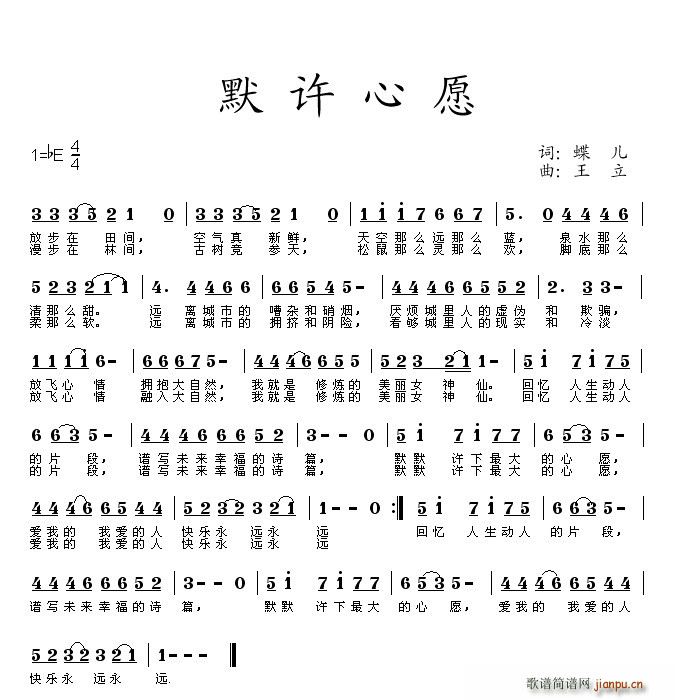 默 许 心 愿
1=♭E 4/4
词: 蝶 儿
曲: 王 立
3 3 3 5 2 1 0 | 3 3 3 5 2 1 0 | 1 i i 7 6 6 7 | 5. 0 4 4 4 6 |
放步在 田间， 空气真 新鲜， 天空那么远那么 蓝， 泉水那么
漫步在 林间， 古树竞 参天， 松鼠那么灵那么 欢， 脚底那么
5 2 3 2 1 1 | 4. 4 4 4 6 | 6 6 5 4 5 | 4 4 4 4 6 6 5 6 | 2. 3 3 - |
清那么甜。 远 离城市的 嘈杂和硝烟， 厌烦城里人的虚伪 和 欺骗，
柔那么软。 远 离城市的 拥挤和阴险， 看够城里人的现实 和 冷淡
1 1 1 1 6 - | 6 6 6 7 5 - | 4 4 4 6 4 4 6 | 5 2 2 3 2 1 | 5 i 7 i 7 5 |
放飞心 情 拥抱大自然， 我就是 修炼的 美丽女 神仙。 回忆 人生动人
放飞心 情 融入大自然， 我就是 修炼的 美丽女 神仙。 回忆 人生动人
6 6 3 5 - | 4 4 4 6 6 6 5 2 | 3 - - 0 | 5 i 7 i 7 5 | 6 5 3 5 - |
的片段， 谱写未来幸福的诗 篇， 默默 许下最大 的心愿，
的片段， 谱写未来幸福的诗 篇， 默默 许下最大 的心愿，
4 4 4 6 6 5 4 4 | 5 2 3 5 2 3 2 1 | 1 - - 0 :| 5 i 7 i 7 5 | 6 6 3 5 - |
爱我的 我爱的人 快乐永 远永 远 回忆 人生动人 的片段，
爱我的 我爱的人 快乐永 远永 远
4 4 4 6 6 6 5 2 | 3 - - 0 | 5 i 7 i 7 5 | 6 5 3 5 - | 4 4 4 6 6 5 4 4 |
谱写未来幸福的诗 篇， 默默 许下最大 的心愿， 爱我的 我爱的人
5 2 3 2 3 2 1 | 1 - - 0 ‖
快乐永 远永 远.
歌谱简谱网
jianpu.cn